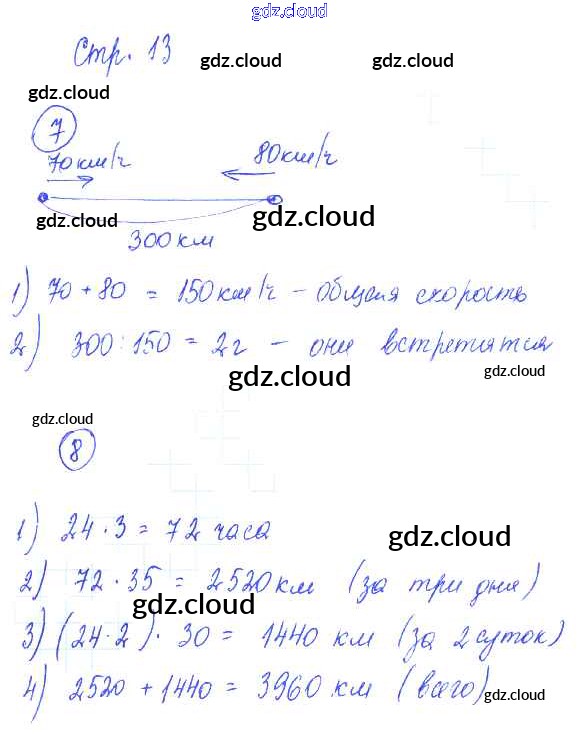 gdz.cloud
Стр. 13
gdz.cloud gdz.cloud
gdz.cloud
7
70км/ч 80км/ч
gdz.cloud
300км
1) 70 + 80 = 150км/ч – общая скорость
2) 300 : 150 = 2ч – они встретятся
gdz.cloud gdz.cloud
gdz.cloud
8
1) 24 · 3 = 72 часа
gdz.cloud
2) 72 · 35 = 2520км (за три дня)
gdz.cloud
3) (24 · 2) · 30 = 1440 км (за 2 суток)
4) 2520 + 1440 = 3960 км (всего)
gdz.cloud